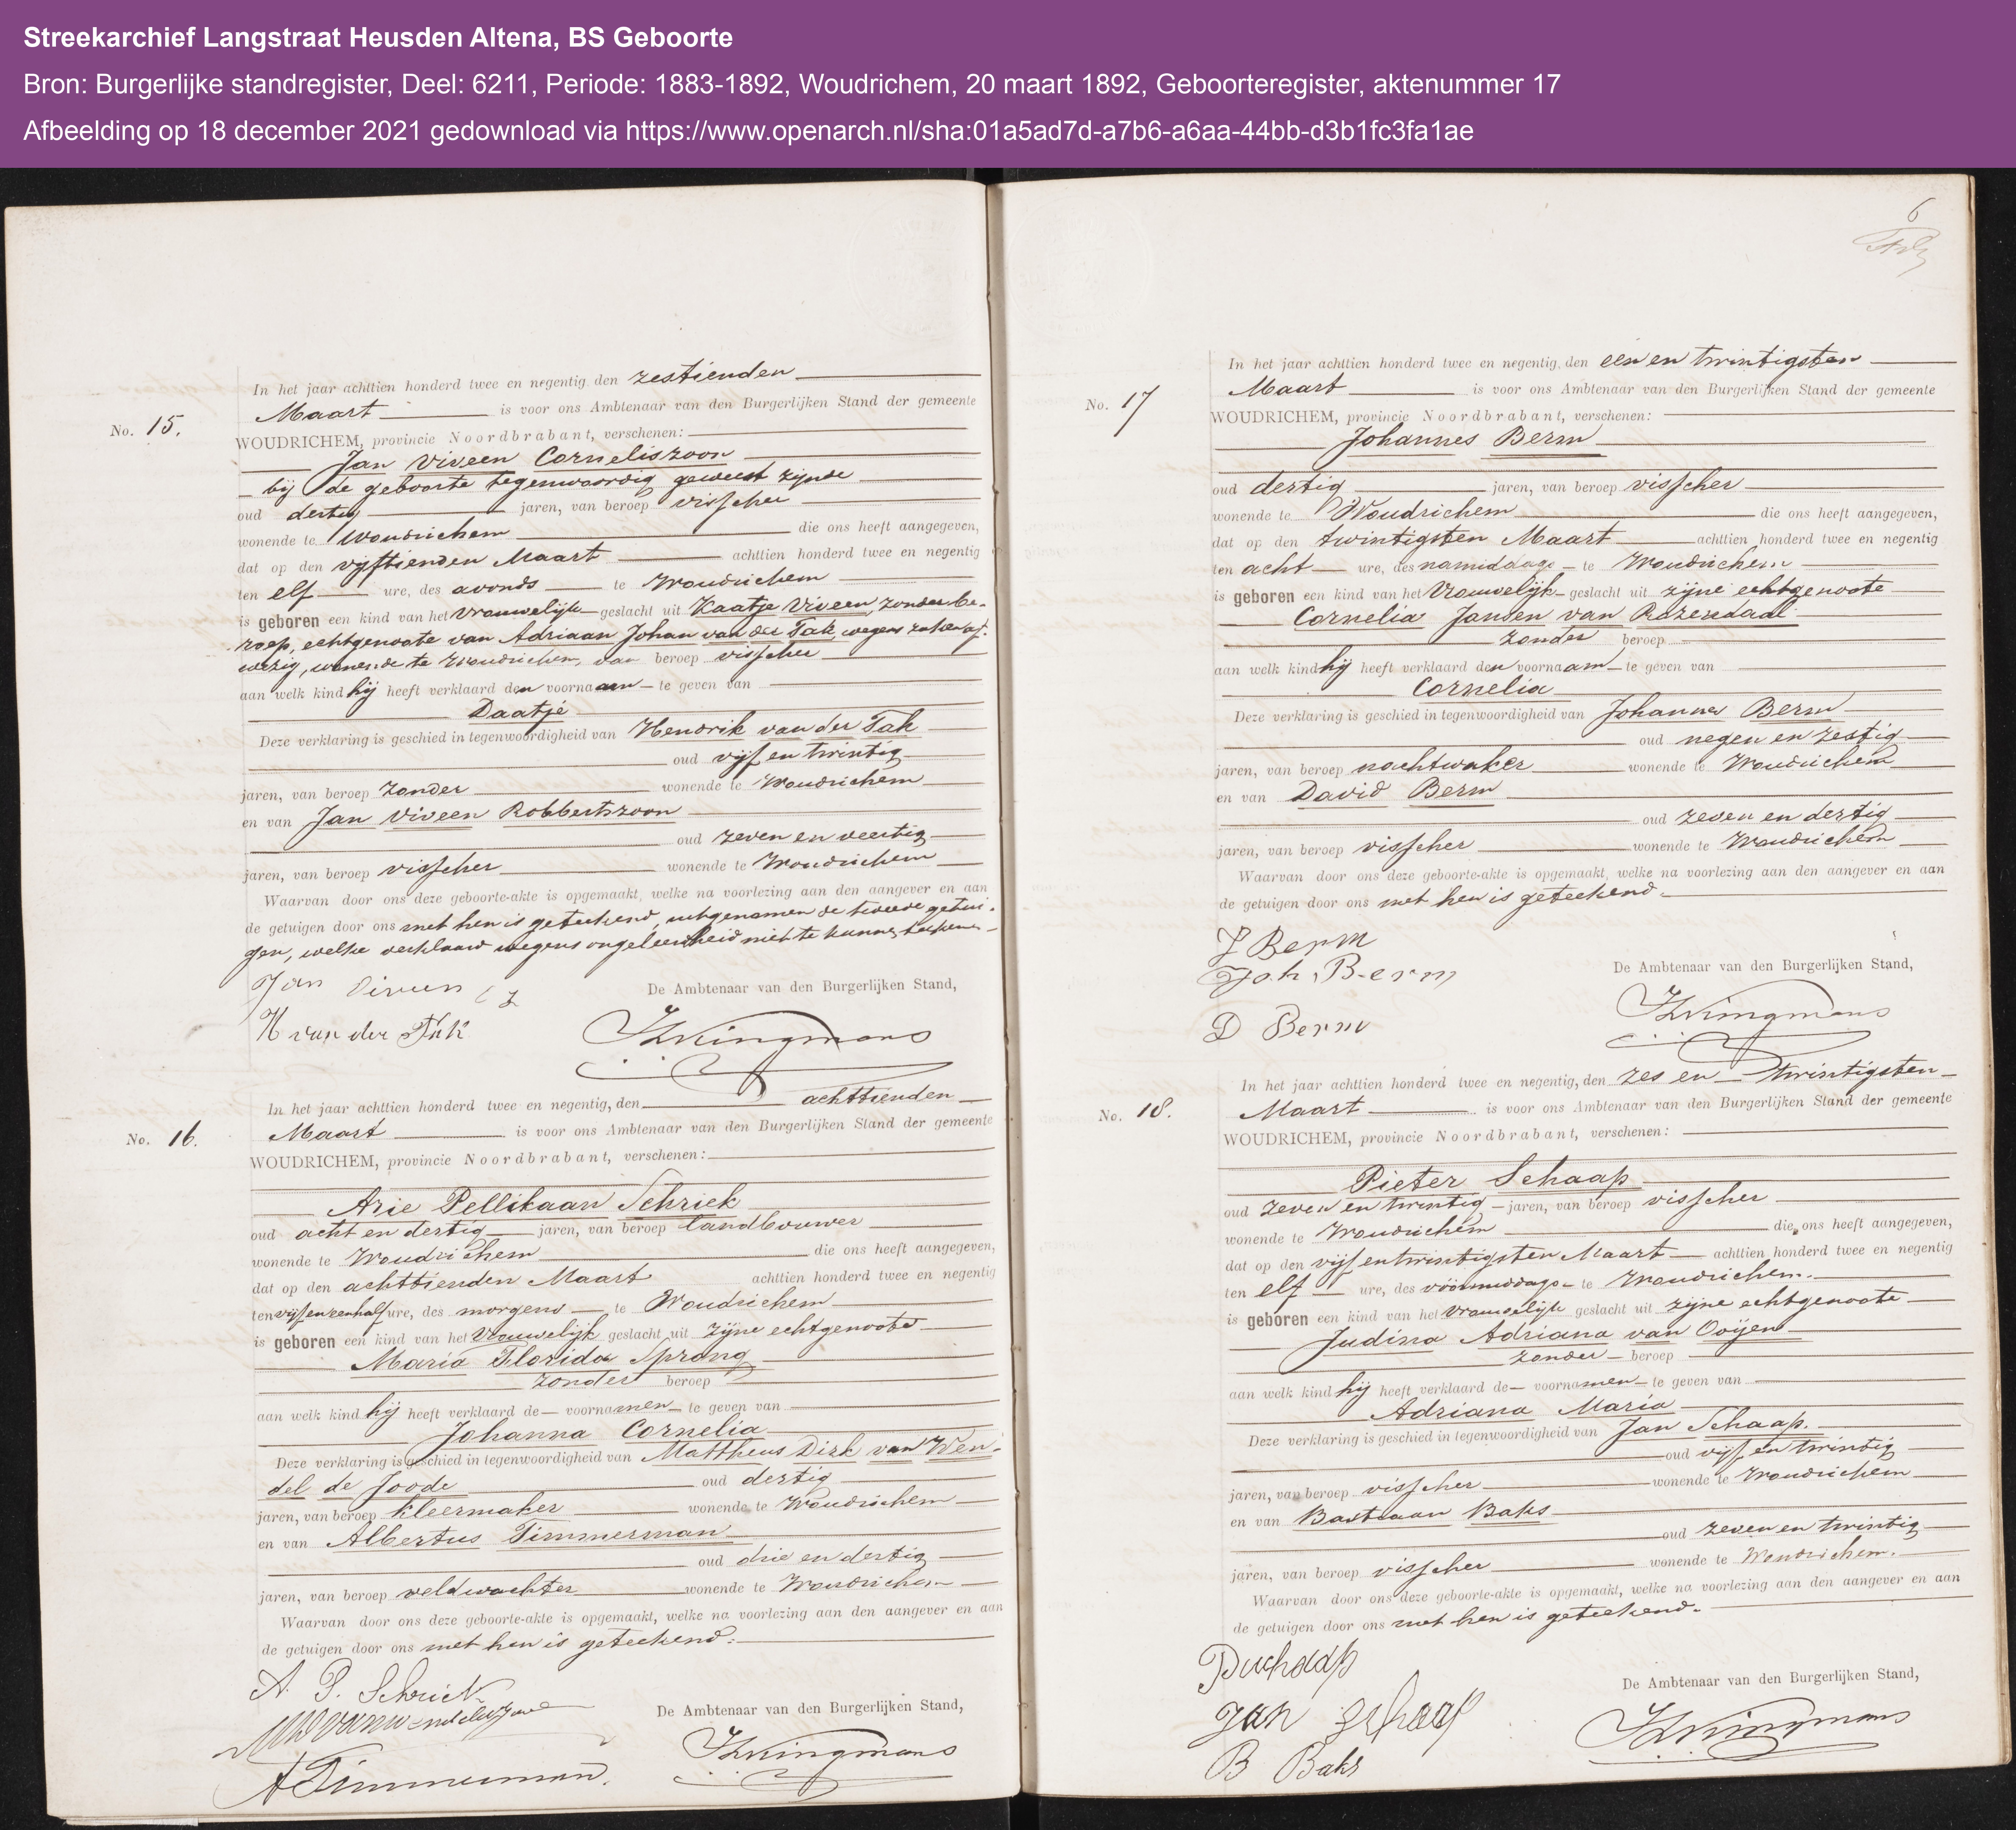 Streekarchief Langstraat Heusden Altena, BS Geboorte
Bron: Burgerlijke standregister, Deel: 6211, Periode: 1883-1892, Woudrichem, 20 maart 1892, Geboorteregister, aktenummer 17
Afbeelding op 18 december 2021 gedownload via https://www.openarch.nl/sha:01a5ad7d-a7b6-a6aa-44bb-d3b1fc3fa1ae
No. 15.
In het jaar achttien honderd twee en negentig den zestienden
Maart is voor ons Ambtenaar van den Burgerlijken Stand der gemeente
WOUDRICHEM, provincie Noordbrabant, verschenen:
Jan Viveen Corneliszoon
bij de geboorte tegenwoordig geweest zijnde
oud dertig jaren, van beroep visscher
wonende te Woudrichem die ons heeft aangegeven,
dat op den vijftienden Maart achttien honderd twee en negentig
ten elf ure, des avonds te Woudrichem
is geboren een kind van het Vrouwelijk geslacht uit Kaatje Viveen, zonder be-
roep, echtgenoote van Adriaan Johan van der Tak, wegens zaken af-
wezig, wonende te Woudrichem, van beroep visscher
aan welk kind hij heeft verklaard den voornaam te geven van
Daatje
Deze verklaring is geschied in tegenwoordigheid van Hendrik van der Tak
oud vijf en twintig
jaren, van beroep zonder wonende te Woudrichem
en van Jan Viveen Robbertszoon
oud zeven en veertig
jaren, van beroep visscher wonende te Woudrichem
Waarvan door ons deze geboorte-akte is opgemaakt, welke na voorlezing aan den aangever en aan
de getuigen door ons met hen is geteekend, uitgenomen de tweede getui-
gen, welke verklaard wegens ongeleerdheid niet te kunnen teekenen.
Jan Viveen C Z
H van der Tak
De Ambtenaar van den Burgerlijken Stand,
Kringmans
No. 16.
In het jaar achttien honderd twee en negentig, den achttienden
Maart is voor ons Ambtenaar van den Burgerlijken Stand der gemeente
WOUDRICHEM, provincie Noordbrabant, verschenen:
Arie Pellikaan Schriek
oud acht en dertig jaren, van beroep landbouwer
wonende te Woudrichem die ons heeft aangegeven,
dat op den achttienden Maart achttien honderd twee en negentig
ten vijf en een half ure, des morgens te Woudrichem
is geboren een kind van het Vrouwelijk geslacht uit zijne echtgenoote
Maria Florida Sprong
zonder beroep
aan welk kind hij heeft verklaard de voornamen te geven van
Johanna Cornelia
Deze verklaring is geschied in tegenwoordigheid van Mattheus Dirk van Wen-
del de Joode oud dertig
jaren, van beroep kleermaker wonende te Woudrichem
en van Albertus Timmerman
oud drie en dertig
jaren, van beroep veldwachter wonende te Woudrichem
Waarvan door ons deze geboorte-akte is opgemaakt, welke na voorlezing aan den aangever en aan
de getuigen door ons met hen is geteekend.
A. P. Schriek
De Ambtenaar van den Burgerlijken Stand,
A Timmerman.
Kringmans
6
No. 17
In het jaar achttien honderd twee en negentig, den een en twintigsten
Maart is voor ons Ambtenaar van den Burgerlijken Stand der gemeente
WOUDRICHEM, provincie Noordbrabant, verschenen:
Johannes Berm
oud dertig jaren, van beroep visscher
wonende te Woudrichem die ons heeft aangegeven,
dat op den twintigsten Maart achttien honderd twee en negentig
ten acht ure, des namiddags te Woudrichem
is geboren een kind van het Vrouwelijk geslacht uit zijne echtgenoote
Cornelia Jansen van Rozendaal
zonder beroep
aan welk kind hij heeft verklaard den voornaam te geven van
Cornelia
Deze verklaring is geschied in tegenwoordigheid van Johannes Berm
oud negen en zestig
jaren, van beroep nachtwaker wonende te Woudrichem
en van David Berm
oud zeven en dertig
jaren, van beroep visscher wonende te Woudrichem
Waarvan door ons deze geboorte-akte is opgemaakt, welke na voorlezing aan den aangever en aan
de getuigen door ons met hen is geteekend.
J Berm
Joh. Berm
De Ambtenaar van den Burgerlijken Stand,
D Berm
Kringmans
No. 18.
In het jaar achttien honderd twee en negentig, den zes en twintigsten
Maart is voor ons Ambtenaar van den Burgerlijken Stand der gemeente
WOUDRICHEM, provincie Noordbrabant, verschenen:
Pieter Schaap
oud zeven en twintig jaren, van beroep visscher
wonende te Woudrichem die ons heeft aangegeven,
dat op den vijf en twintigsten Maart achttien honderd twee en negentig
ten elf ure, des vóórmiddags te Woudrichem.
is geboren een kind van het Vrouwelijk geslacht uit zijne echtgenoote
Judina Adriana van Ooijen
zonder beroep
aan welk kind hij heeft verklaard de voornamen te geven van
Adriana Maria
Deze verklaring is geschied in tegenwoordigheid van Jan Schaap.
oud vijf en twintig
jaren, van beroep visscher wonende te Woudrichem
en van Bastiaan Baks
oud zeven en twintig
jaren, van beroep visscher wonende te Woudrichem.
Waarvan door ons deze geboorte-akte is opgemaakt, welke na voorlezing aan den aangever en aan
de getuigen door ons met hen is geteekend.
P Schaap
Jan Schaap
De Ambtenaar van den Burgerlijken Stand,
B Baks
Kringmans